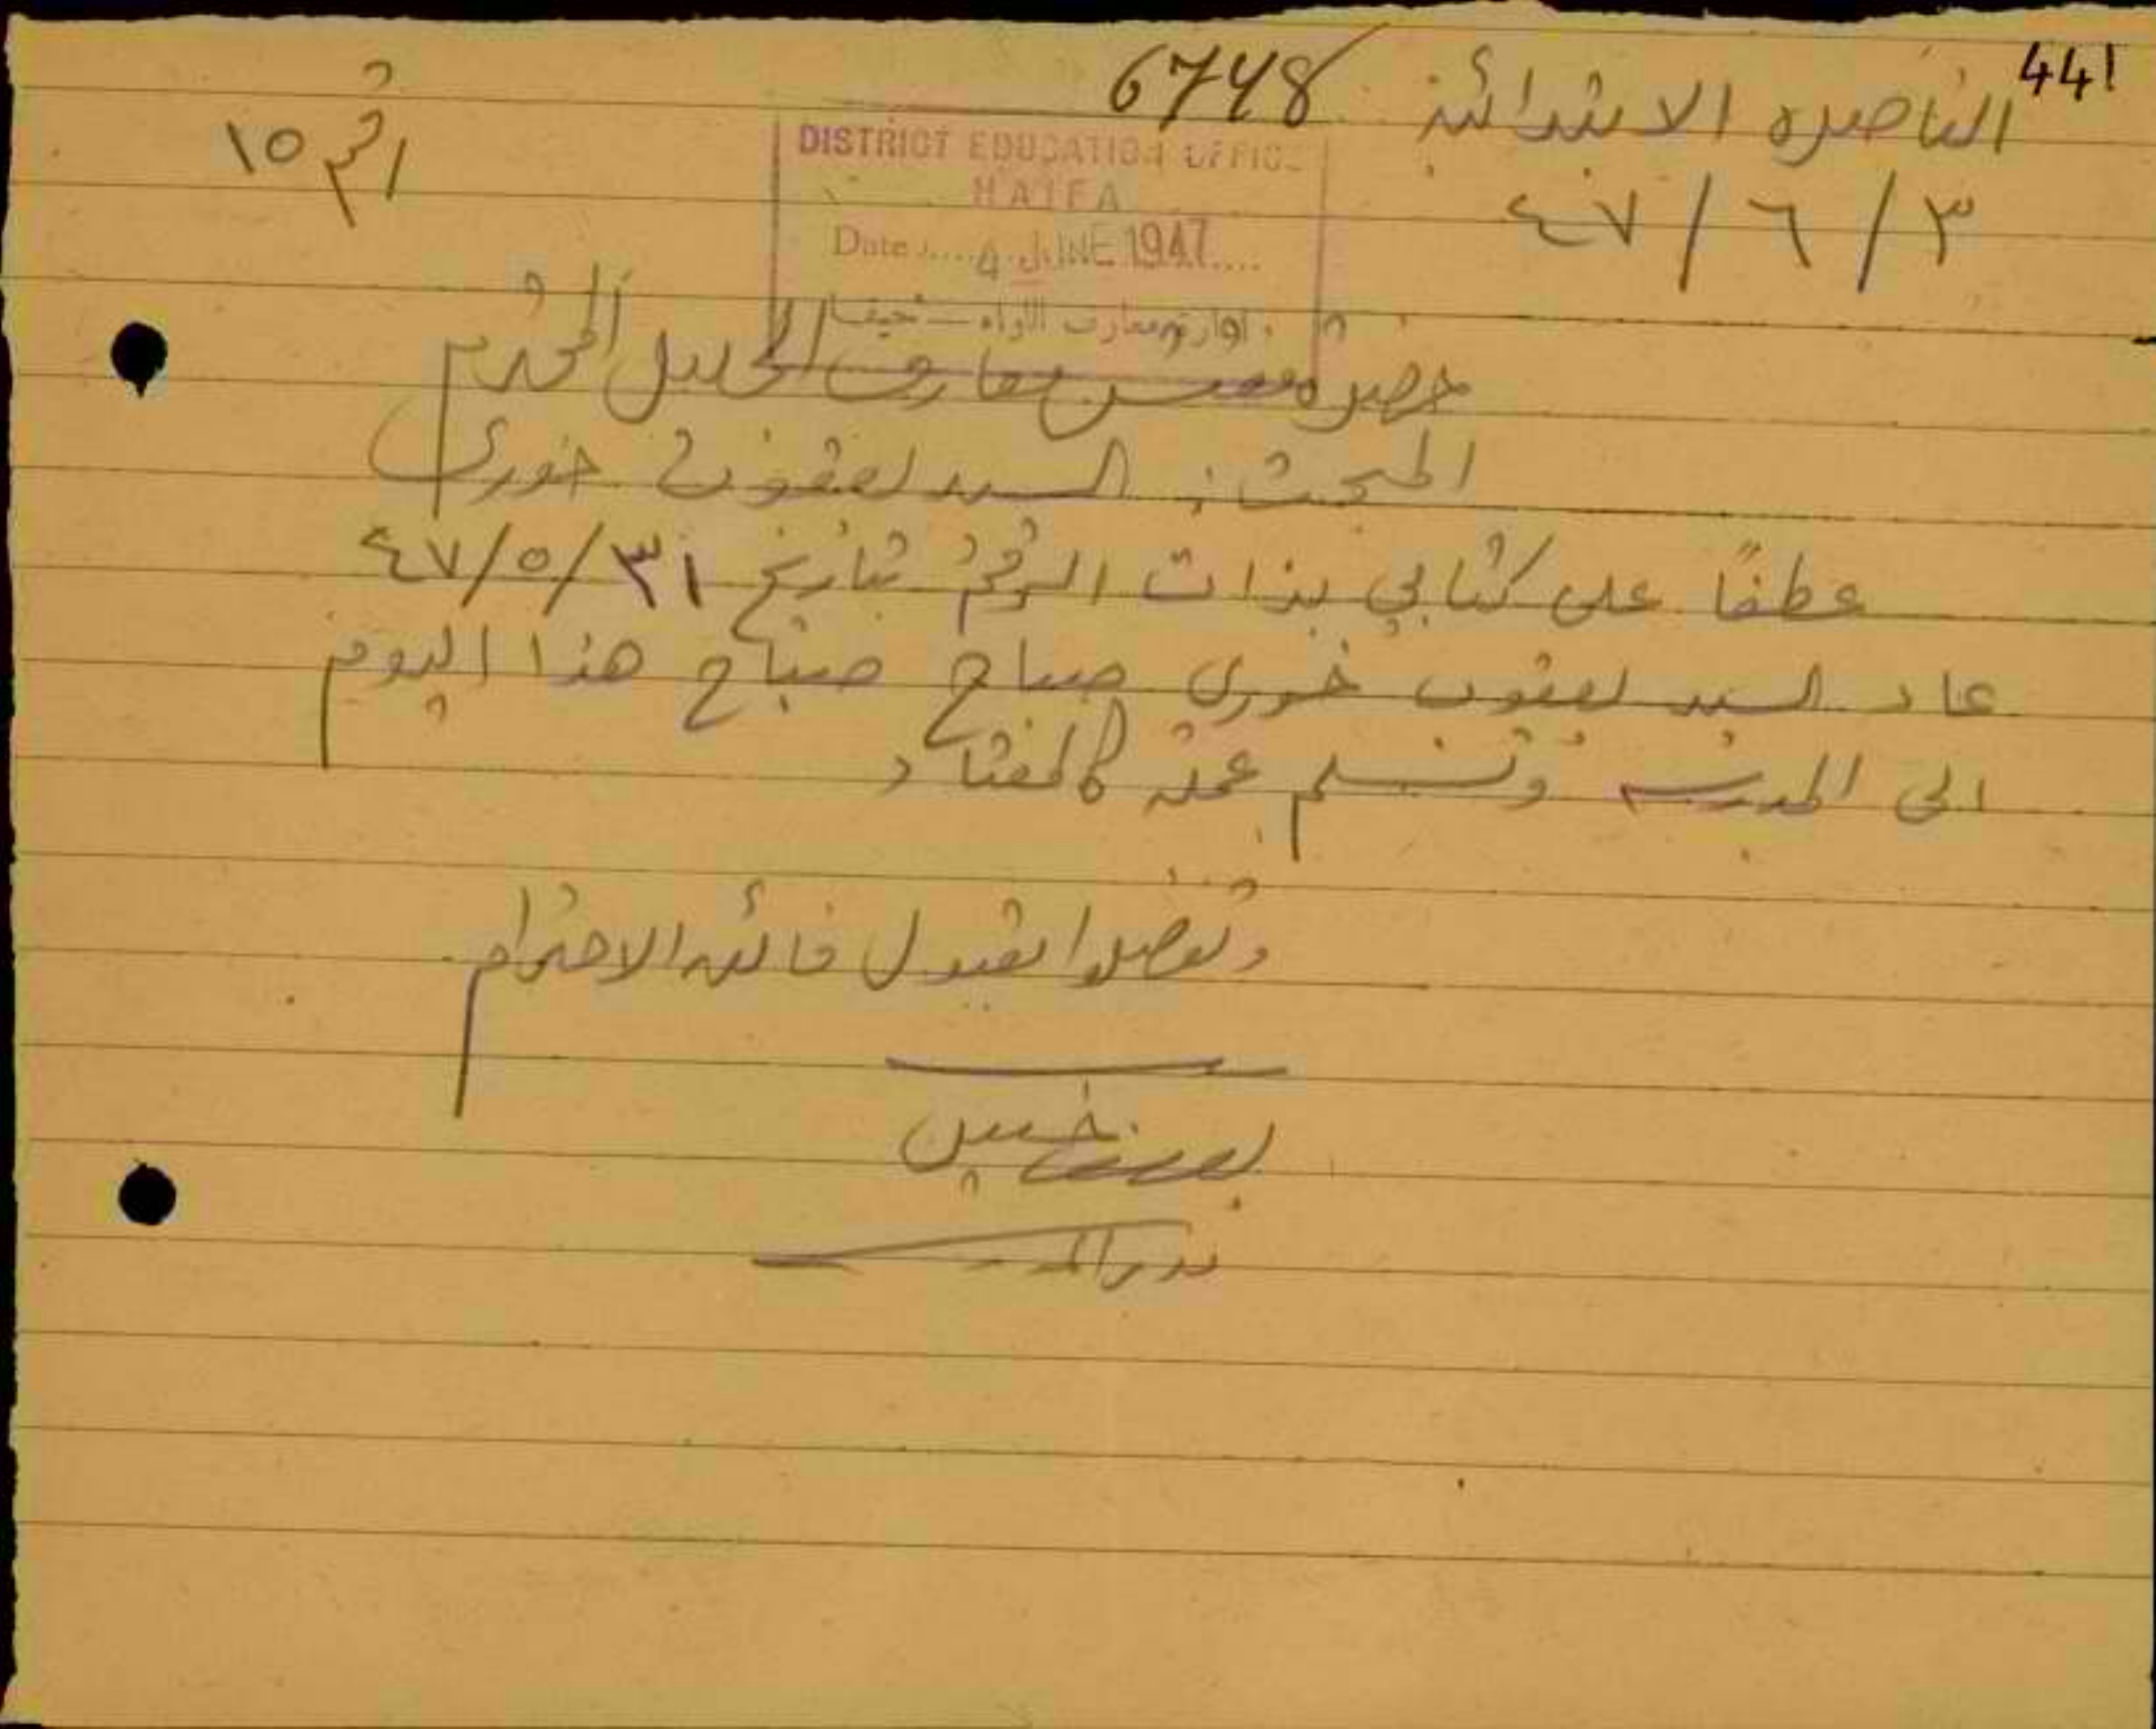 441
6748
الناصره الابتدائية
٣/٦/٤٧
١٥
DISTRICT EDUCATION OFFICE
HAIFA
Date 4 JUNE 1947
معارف اللواء – حيفا
حضرة مفتش معارف الجليل المحترم
المبحث: السيد يعقوب خوري
عطفًا على كتابي بذات الرقم تاريخ ٣١/٥/٤٧
عاد السيد يعقوب خوري صباح صباح هذا اليوم
الى المدرسة وتسلم عمله كالمعتاد
وتفضلوا بقبول فائق الاحترام
مدير المدرسة